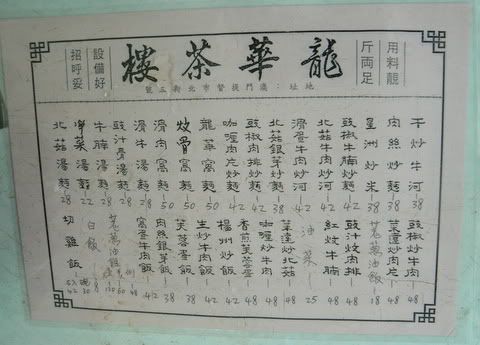 龍華茶樓
用料靚
斤両足
設備好
招呼妥
地址：澳門提督市北街三號
干炒牛河 38
肉絲炒麵 38
星洲炒米 38
豉椒牛腩炒河 42
北菇牛肉炒河 42
滑蛋牛肉炒河 42
北菇銀芽炒麵 42
豉椒肉排炒麵 42
咖喱肉片炒麵 42
龍華窩麵 50
炆骨窩麵 50
滑肉窩麵 50
滑牛湯麵 28
豉汁骨湯麵 28
牛腩湯麵 28
榨菜湯麵 22
北菇湯麵 28
豉椒炒牛肉 48
菜薳炒肉片 48
油飯 18
豉汁炆肉排 48
紅炆牛腩 48
油菜 25
菜薳炒北菇 48
咖喱炒牛肉 48
香煎芙蓉蛋 48
楊州炒飯 42
生炒牛肉飯 42
芙蓉蛋飯 38
肉絲銀芽飯 38
窩蛋牛肉飯 42
油雞
白飯
切雞飯 42